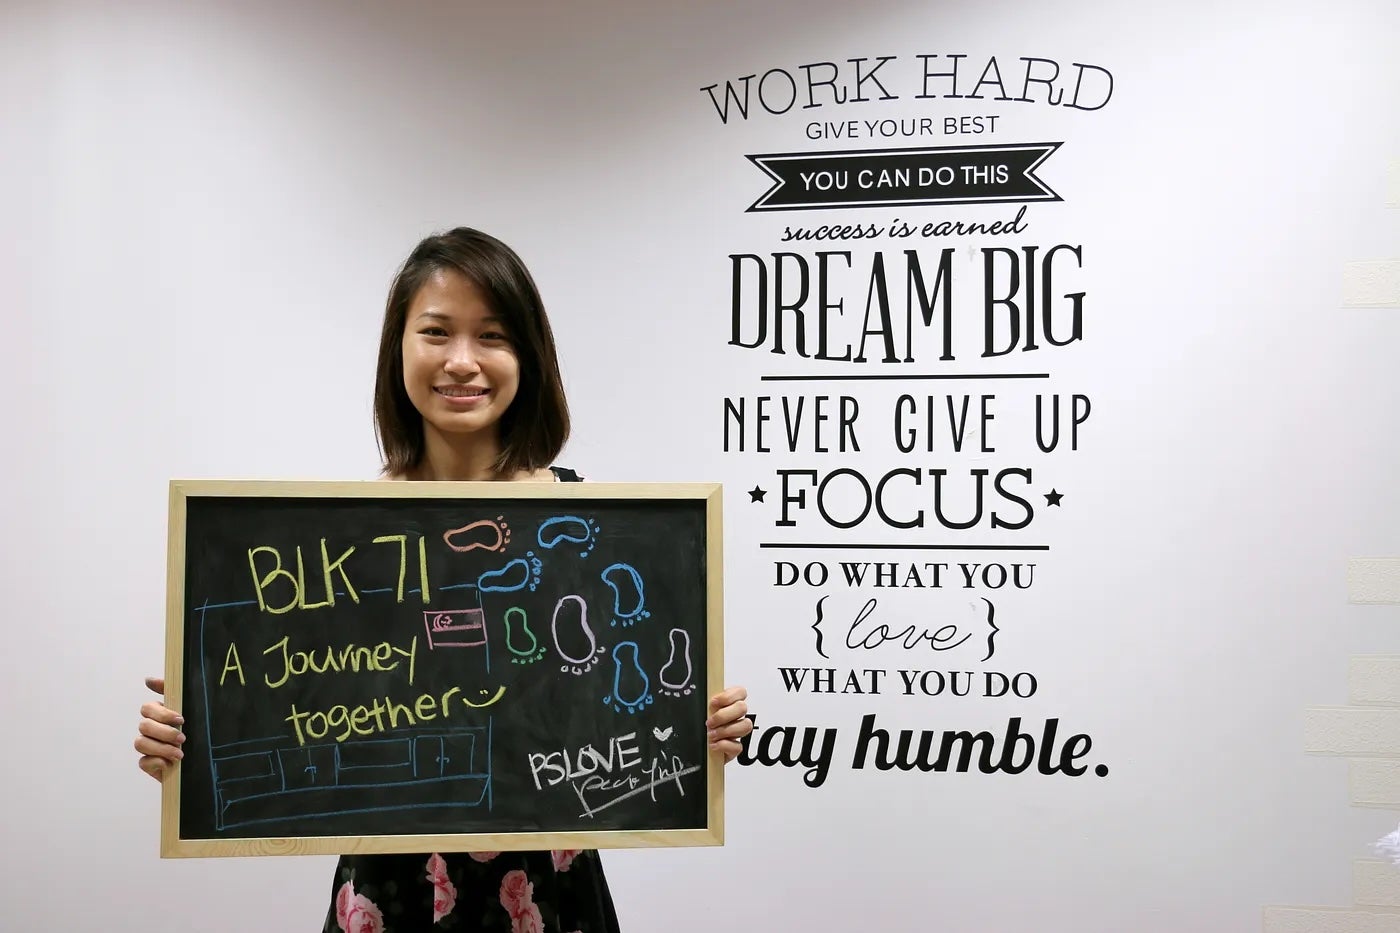 WORK HARD
GIVE YOUR BEST
YOU CAN DO THIS
success is earned
DREAM BIG
NEVER GIVE UP
FOCUS
DO WHAT YOU
{love}
WHAT YOU DO
tay humble.
BLK 71
A Journey
together
PSLOVE